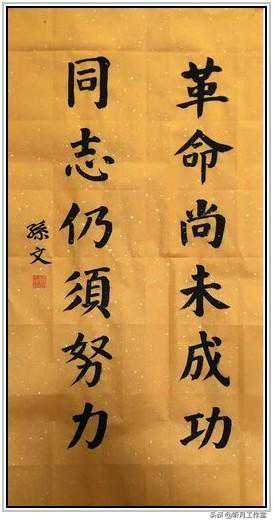 革命尚未成功
同志仍須努力
孫文
头条@昕月工作室